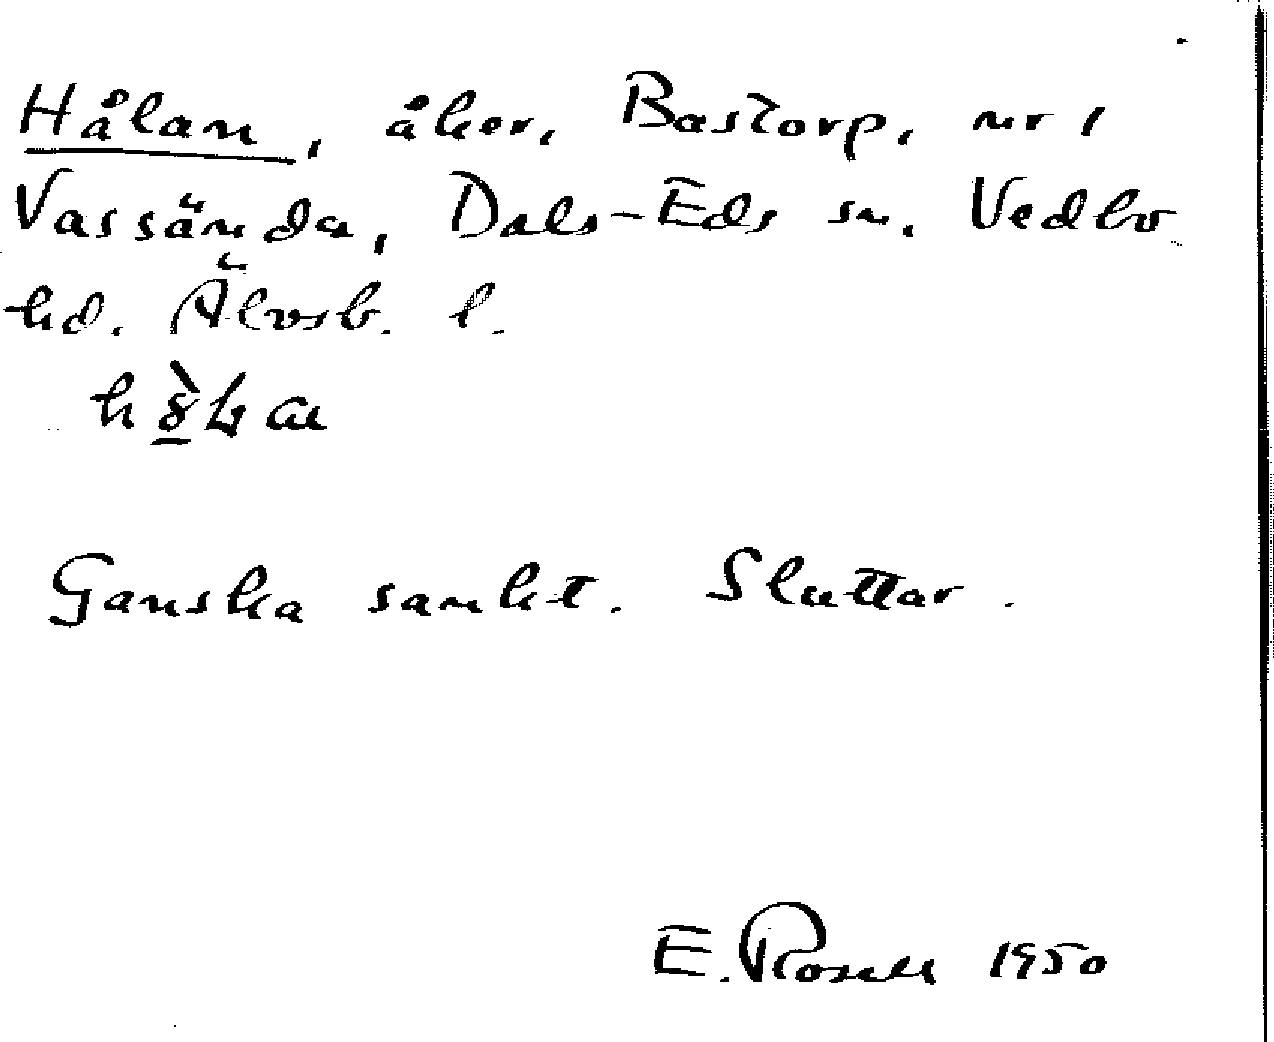 Hålan, åker, Bastorp, nr 1
Vassända, Dals-Eds sn. Vedbo
hd. Älvsb. l.
Ganska sankt. Sluttar.
E. Rosell 1950